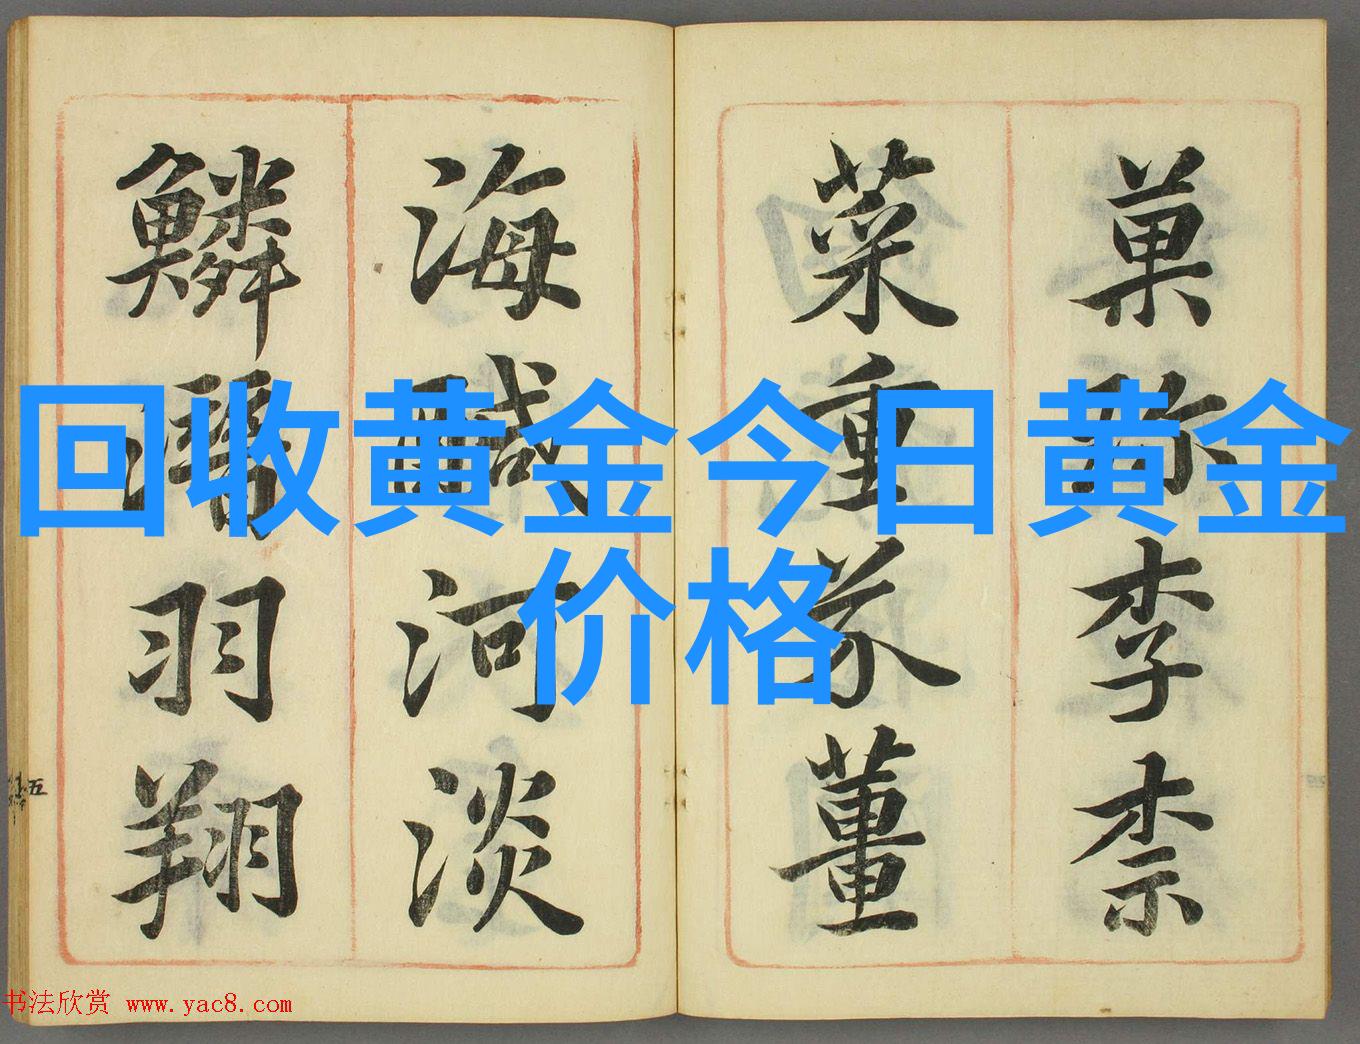 菓珍李柰
菜重芥薑
海鹹河淡
鱗潛羽翔
五
回收黄金今日黄金
价格
书法欣赏 www.yac8.com